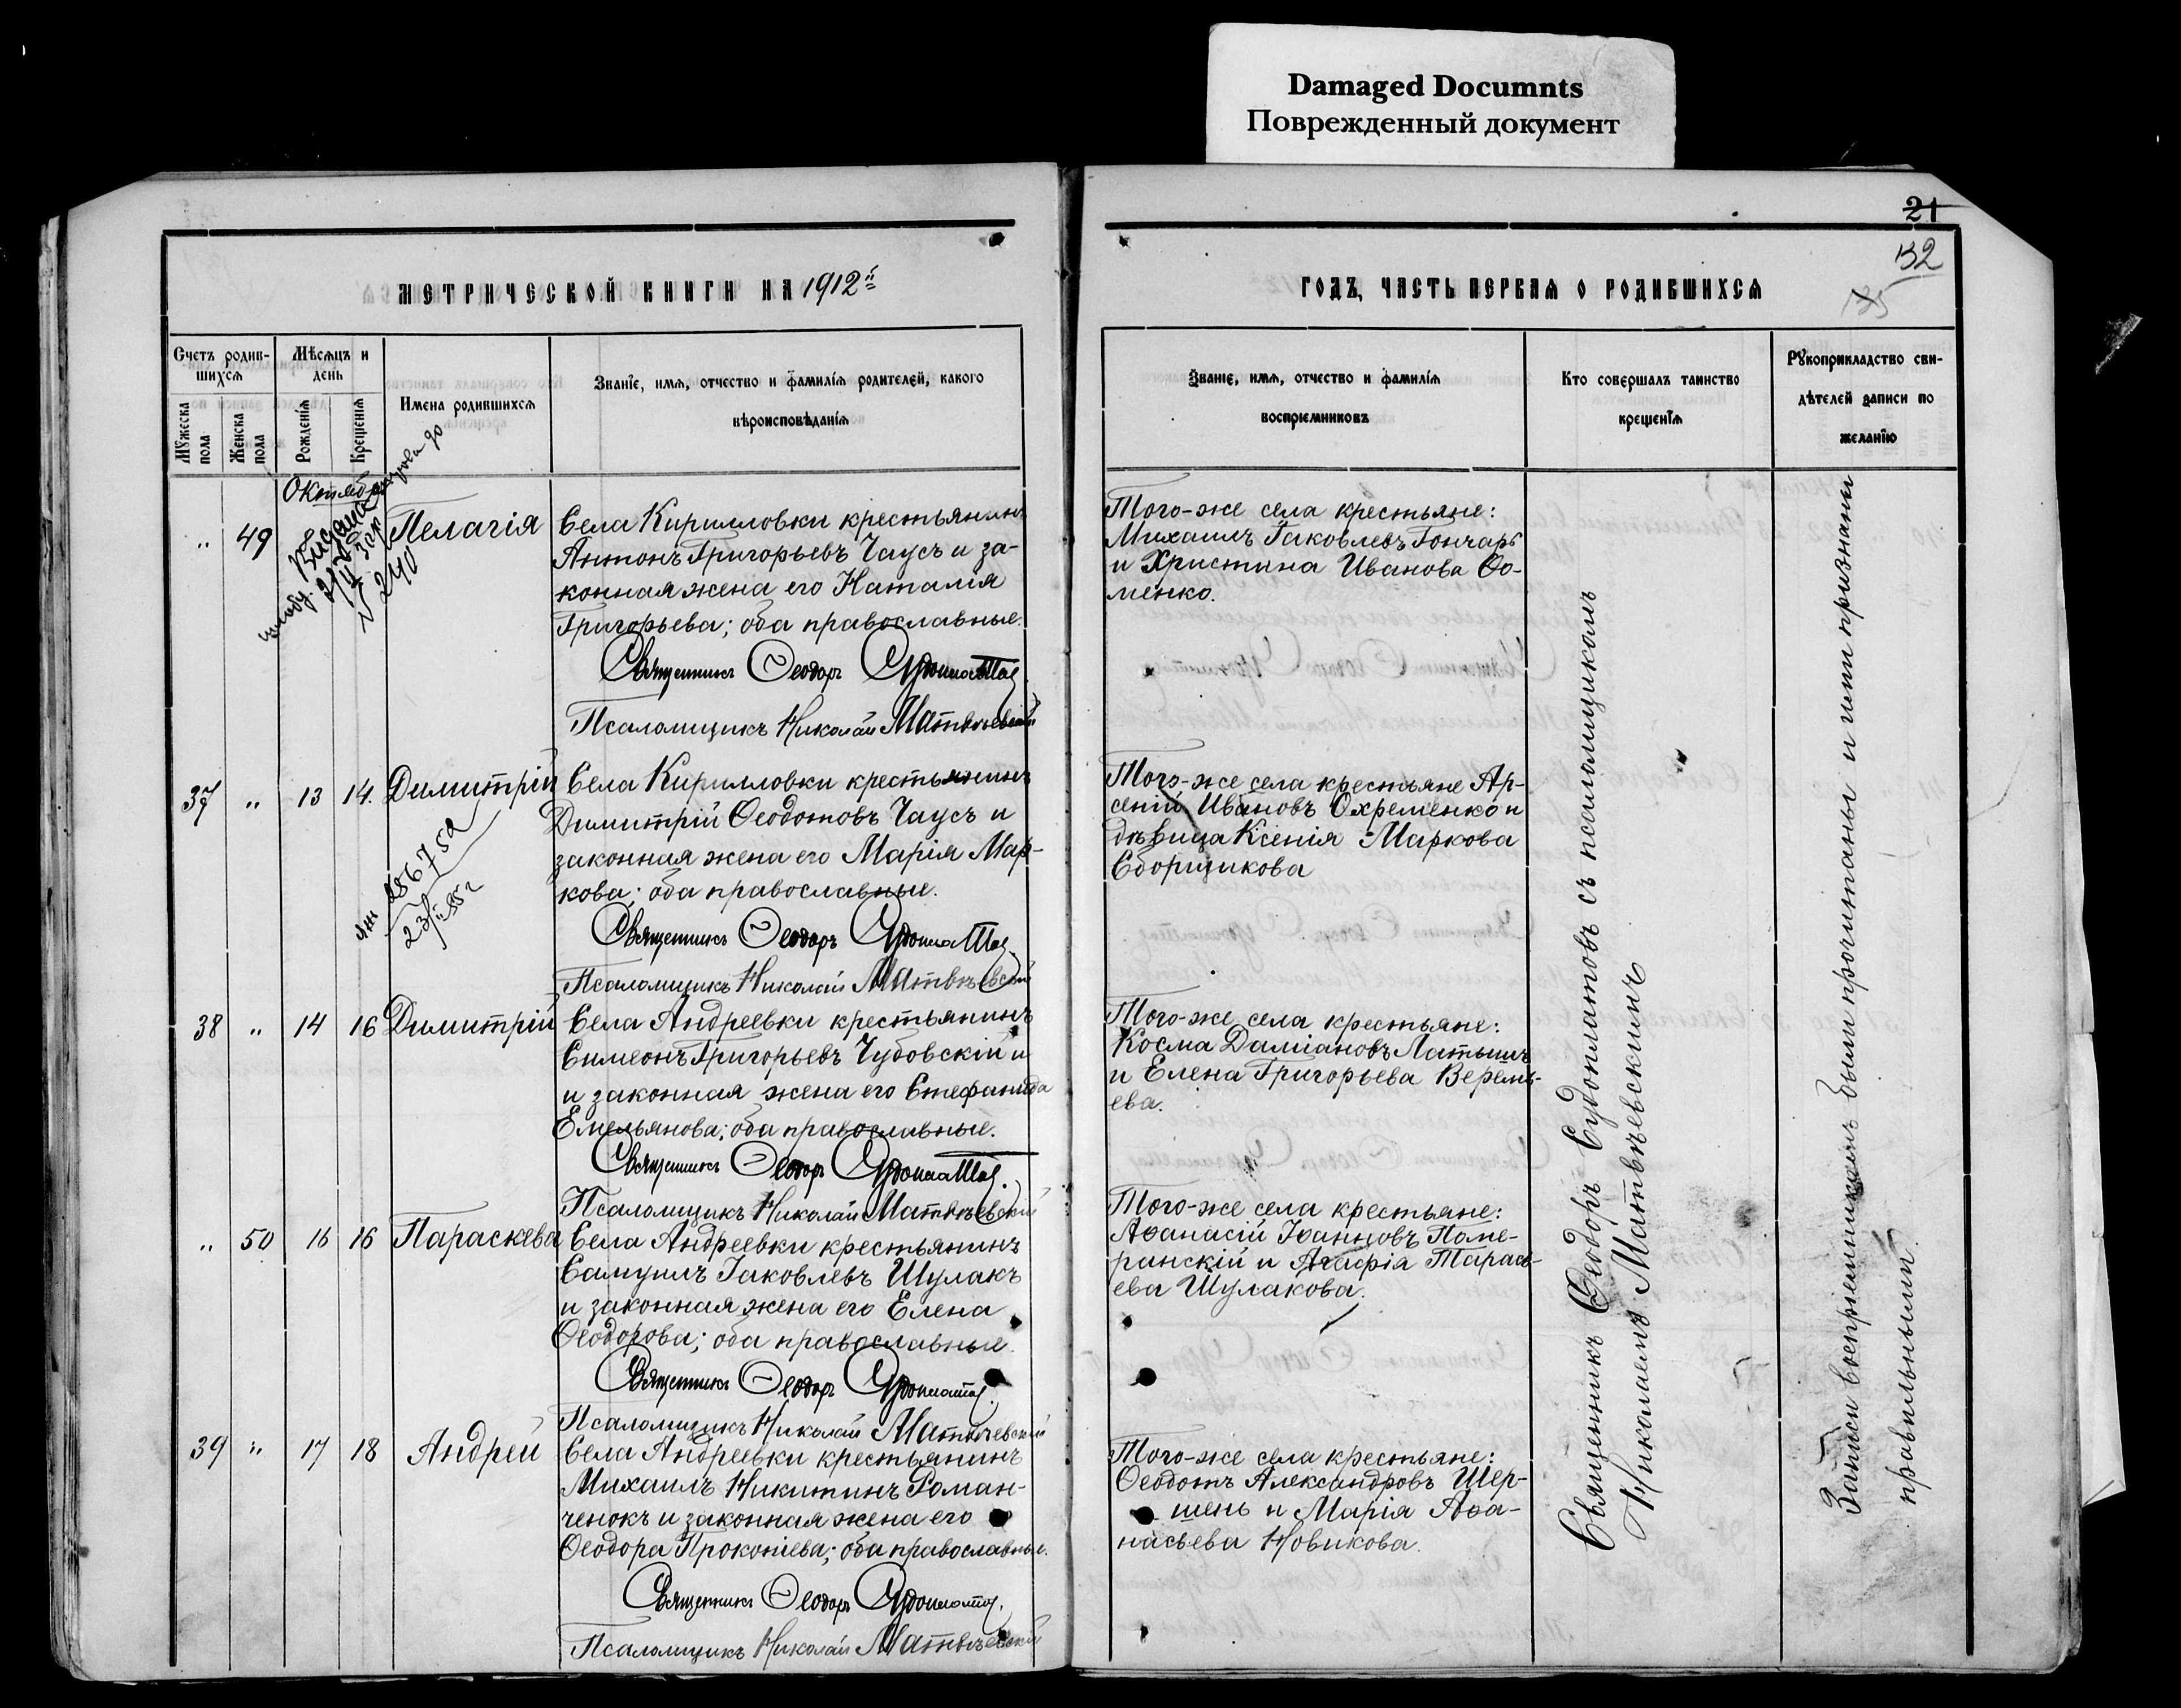 Damaged Documnts
Поврежденный документ
21
132
МЕТРИЧЕСКОЙ КНИГИ НА 1912й
ГОДЪ, ЧАСТЬ ПЕРВАЯ О РОДИВШИХСЯ
Счетъ родив-
шихся
Мужеска пола
Женска пола
Мѣсяцъ и
день
Рожденія
Крещенія
Имена родившихся
Званіе, имя, отчество и фамилія родителей, какого
вѣроисповѣданія
Званіе, имя, отчество и фамилія
воспріемниковъ
Кто совершалъ таинство
крещенія
Рукоприкладство сви-
дѣтелей записи по
желанію
Октябрь
" 49 Пелагія
240
Села Кирилловки крестьянинъ
Антонъ Григорьевъ Чаусъ и за-
конная жена его Наталія
Григорьева; оба православные.
Священникъ Ѳеодоръ Судоплатов
Псаломщикъ Николай Матвѣевскій
Того-же села крестьяне:
Михаилъ Іаковлевъ Гончаръ
и Христина Иванова Ѳо-
менко.
37 " 13 14. Димитрій
Села Кирилловки крестьянинъ
Димитрій Ѳеодотовъ Чаусъ и
законная жена его Марія Мар-
кова; оба православные.
Священникъ Ѳеодоръ Судоплатов
Псаломщикъ Николай Матвѣевскій
Того-же села крестьяне Ар-
сеній Ивановъ Охременко и
дѣвица Ксенія Маркова
Сборщикова
38 " 14 16 Димитрій
Села Андреевки крестьянинъ
Симеонъ Григорьевъ Чубовскій и
и законная жена его Стефанида
Емельянова; оба православные.
Священникъ Ѳеодоръ Судоплатов.
Псаломщикъ Николай Матвѣевскій
Того-же села крестьяне:
Косма Даміановъ Латышъ
и Елена Григорьева Веремѣ-
ева.
" 50 16 16 Параскева
Села Андреевки крестьянинъ
Самуилъ Іаковлевъ Шулакъ
и законная жена его Елена
Ѳеодорова; оба православные.
Священникъ Ѳеодоръ Судоплатов.
Псаломщикъ Николай Матвѣевскій
Того-же села крестьяне:
Аѳанасій Іоанновъ Поме-
ранскій и Агафія Тарась-
ева Шулакова.
39 " 17 18 Андрей
Села Андреевки крестьянинъ
Михаилъ Никитинъ Роман-
ченокъ и законная жена его
Ѳеодора Прокопіева; оба православные.
Священникъ Ѳеодоръ Судоплатов.
Псаломщикъ Николай Матвѣевскій
Того-же села крестьяне:
Ѳеодотъ Александровъ Шер-
шень и Марія Аѳа-
насьева Новикова.
Священникъ Ѳеодоръ Судоплатовъ съ псаломщикомъ
Николаемъ Матвѣевскимъ
Записи воспріемникамъ были прочитаны и ими признаны
правильными.